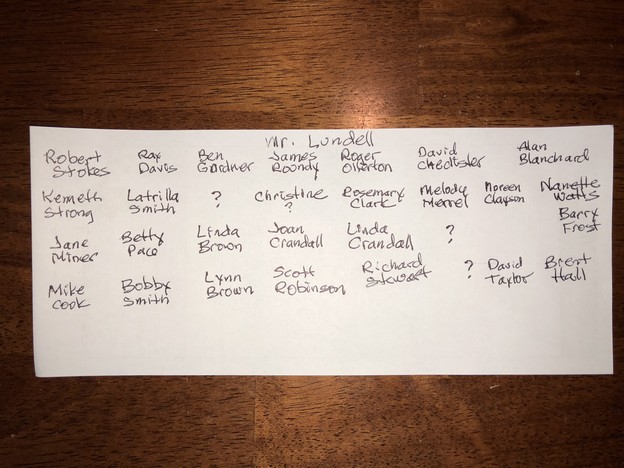 Mr. Lundell
Robert Ray Ben James Roger David Alan
Stokes Davis Gardner Roundy Ollerton Blanchard
Kenneth Latrilla ? Christine Rosemary Melodie Noreen Nanette
Strong Smith ? Clark Clayson Watts
Jane Betty Linda Joan Linda ? Barry
Miner Pace Brown Crandall Crandall Frost
Mike Bobby Lynn Scott Richard ? David Brent
Cook Smith Brown Robinson Stewart Taylor Hall